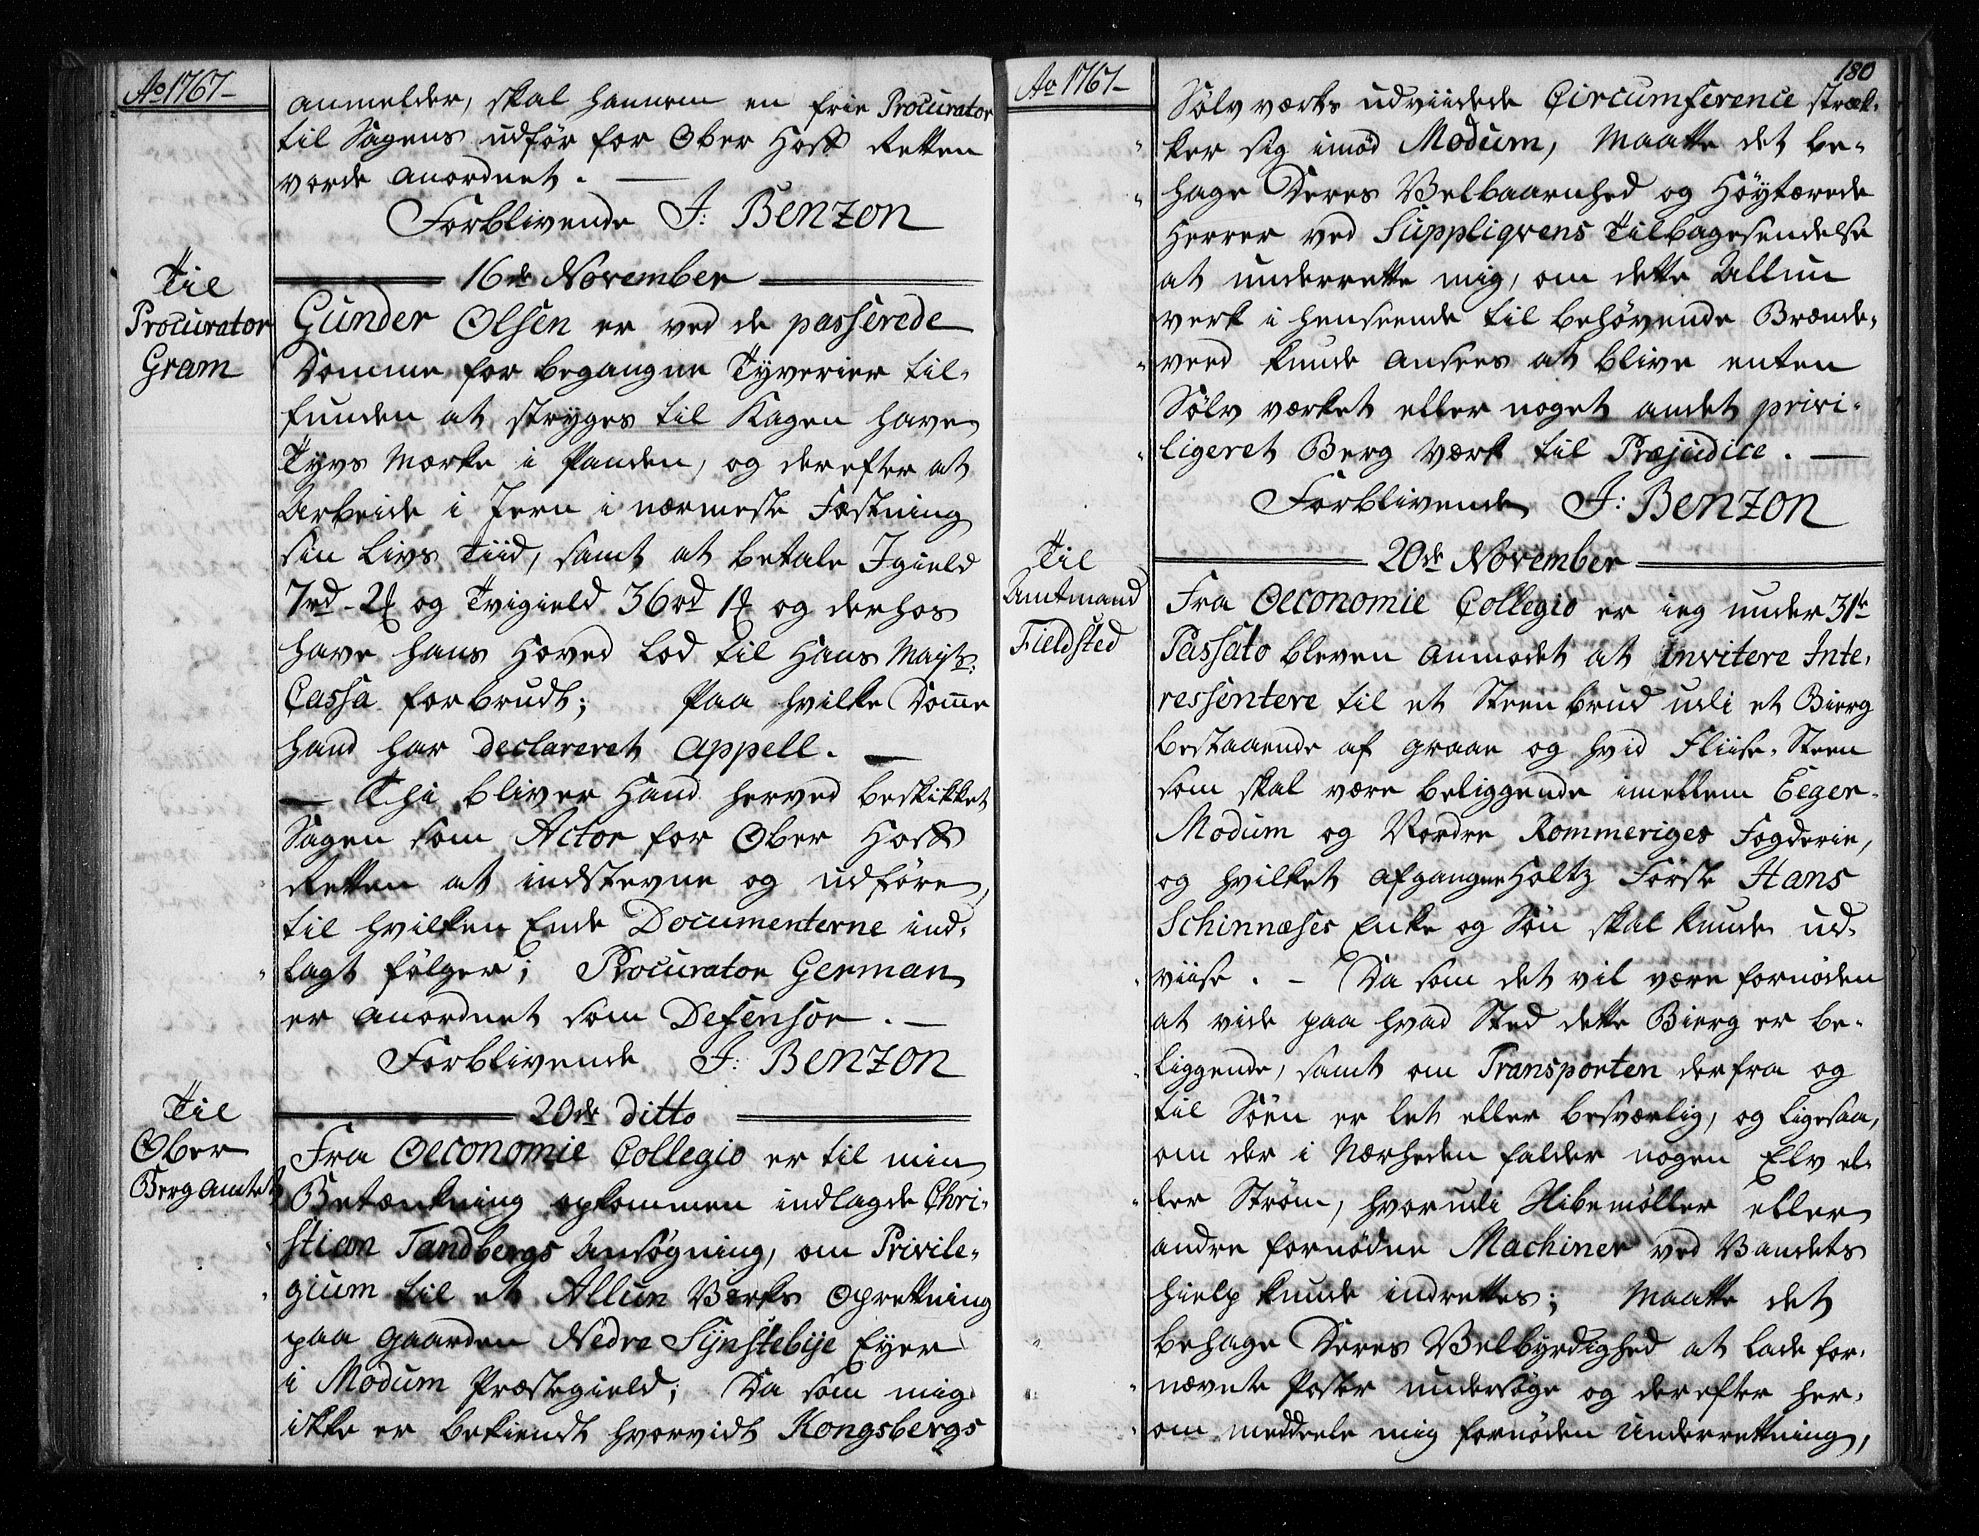 Ao 1767-
anmelder, skal hannem en frie Procurator
til Sagens udfør for Ober Hoff Retten
vorde anordnet. -
Forblivende J: Benzon
16de November
Til
Procurator
Gram
Gunder Olsen er ved de passerede
Domme for begangne Tyverier til-
funden at stryges til Kagen have
Tyvs Mærke i Panden, og derefter at
Arbeide i Jern i nærmeste Fæstning
sin Livs Tiid, samt at betale Igield
7rd - 2ß og Tvigield 36rd 1ß og derhos
have hans Hoved Lod til Hans Mayts:
Cassa forbrudt; Paa hvilke Domme
hand har declareret Appell. -
- Thi bliver Hand herved beskikket
Sagen som Actor for Ober Hoff
Retten at indstevne og udføre,
til hvilken Ende Documenterne ind-
lagt følger; Procurator German
er anordnet som Defensor. -
Forblivende J: Benzon
20de ditto
Til
Ober
Berg Amtet
Fra Oeconomie Collegio er til min
Betænkning opkommen indlagde Chri-
stian Tandbergs Ansøgning, om Privile-
gium til et Allun Værks Oprettning
paa Gaarden Nedre Sÿnstebÿe Eyer
i Modum Præstegield; Da som mig
ikke er bekiendt hvorvidt Kongsbergs
Ao 1767-
180
Sølv værks udviidede Circumference stræk-
ker sig imod Modum, Maatte det be-
hage Deres Velbaarnhed og Høytærede
Herrer ved Suppliqvens Tilbagesendelse
at underrette mig, om dette Allun
verk i henseende til behøvende Brænde-
veed kunde ansees at blive enten
Sølv værket eller noget andet privi-
ligeret Berg Værk til Præjudice. -
Forblivende J: Benzon
20de November
Til
Amtmand
Fieldsted
Fra Oeconomie Collegio er ieg under 31te
Passato bleven anmodet at invitere Inte-
ressentere til et Steen brud udi et Bierg
bestaaende af graae og hvid Fliise-Steen
som skal være beliggende imellem Eeger-
Modum og Nordre Rommeriges Fogderie,
og hvilket afgangne Holtz Førster Hans
Schinnæses Enke og Søn skal kunde ud-
viise. - Da som det vil være fornøden
at vide paa hvad Sted dette Bierg er be-
liggende, samt om Transporten derfra og
til Søen er let eller besværlig, og ligesaa,
om der i Nærheden falder nogen Elv el-
ler Strøm, hvorudi Slibemøller eller
andre fornødne Machiner ved Vandets
hielp kunde indrettes; Maatte det
behage Deres Velbyrdighed at lade for-
nævnte Poster undersøge og derefter her-
om meddeele mig fornøden Underretning,